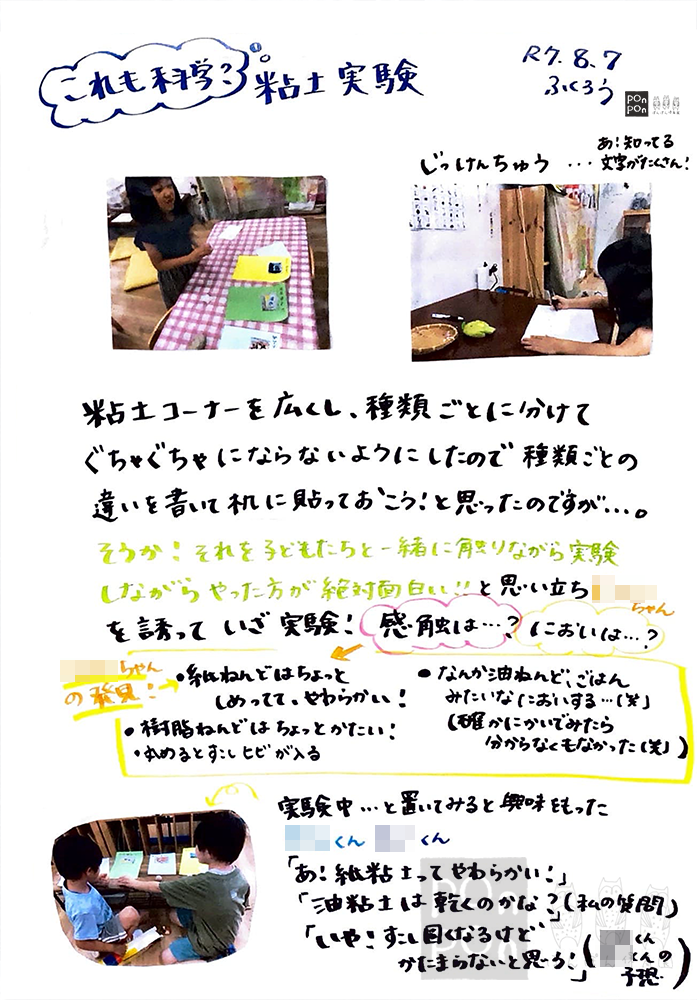 これも科学?
粘土実験
R7.8.7
ふくろう
PONPON
じっけんちゅう …
あ!知ってる
文字がたくさん!
粘土コーナーを広くし、種類ごとに分けて
ぐちゃぐちゃにならないようにしたので種類ごとの
違いを書いて机に貼っておこう!と思ったのですが…。
そうか!それを子どもたちと一緒に触りながら実験
しながらやった方が絶対面白い!!と思い立ち
ちゃん
を誘っていざ実験! 感触は…? においは…?
ちゃん
の発見!
・紙ねんどはちょっと
しめってて、やわらかい!
・樹脂ねんどはちょっとかたい!
・丸めるとすこしヒビが入る
・なんか油ねんど、ごはん
みたいなにおいする…(笑)
(確かにかいでみたら
分からなくもなかった(笑))
実験中…と置いてみると興味をもった
くん くん
「あ!紙粘土ってやわらかい!」
「油粘土は乾くのかな?」(私の質問)
「いや!すこし固くなるけど
かたまらないと思う!」
(くん
くんの
予想)
PON
PON